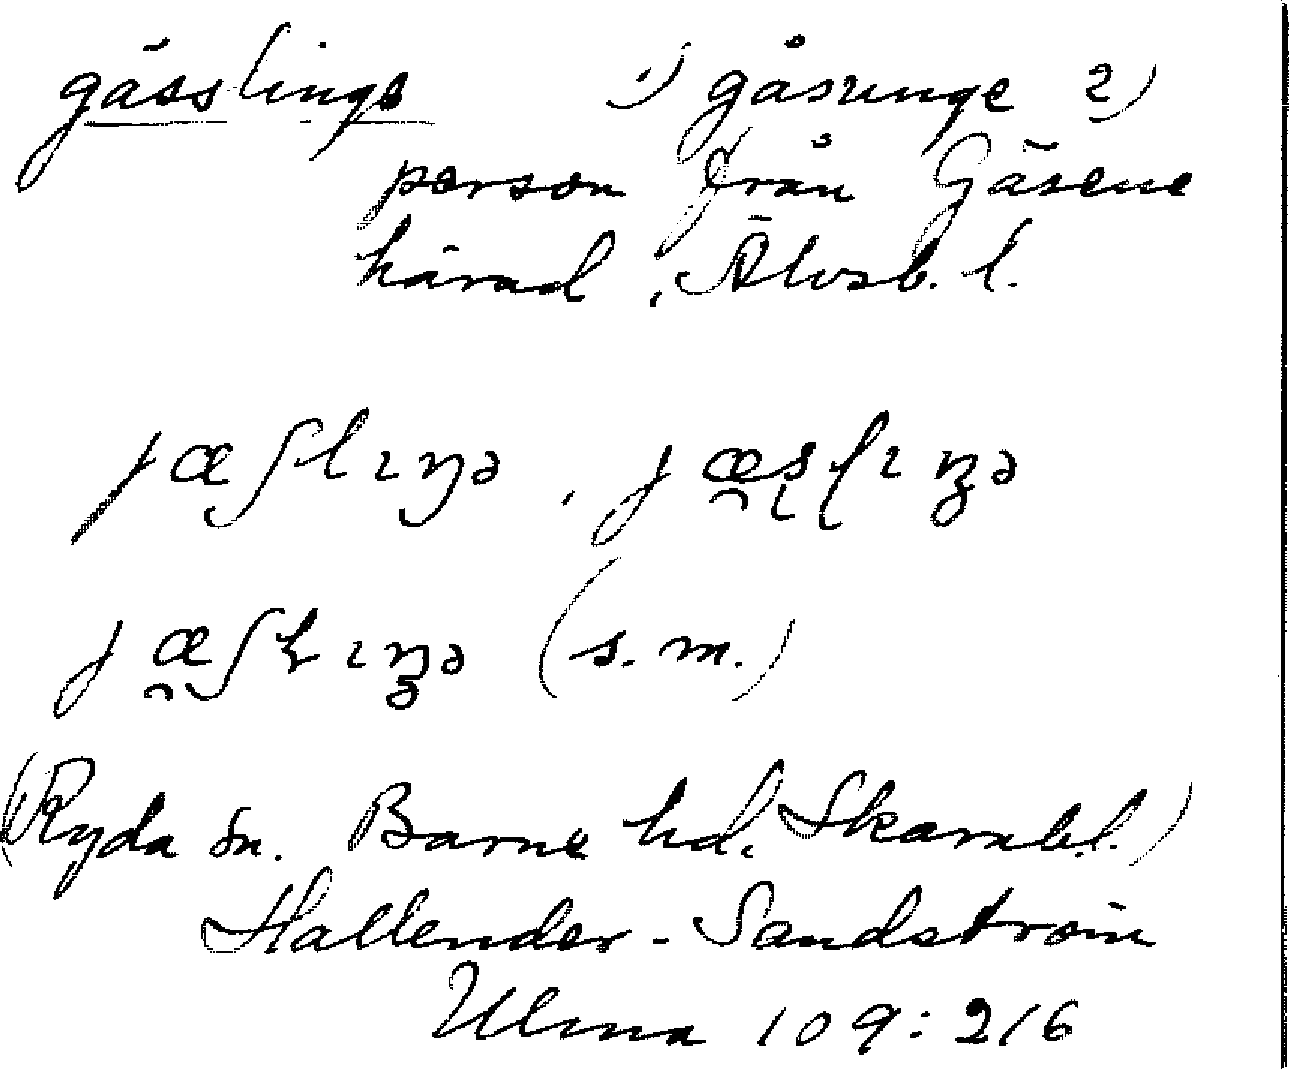 gässlinge 1) gåsunge 2)
person från Gäsene
härad, Älvsb. l.
jæʃlıŋə, jæ̯ʂɭıŋə
jæ̯ʃlıŋə (s. m.)
(Ryda sn. Barne hd. Skarab.l.)
Hallender-Sandström
Ulma 109:216